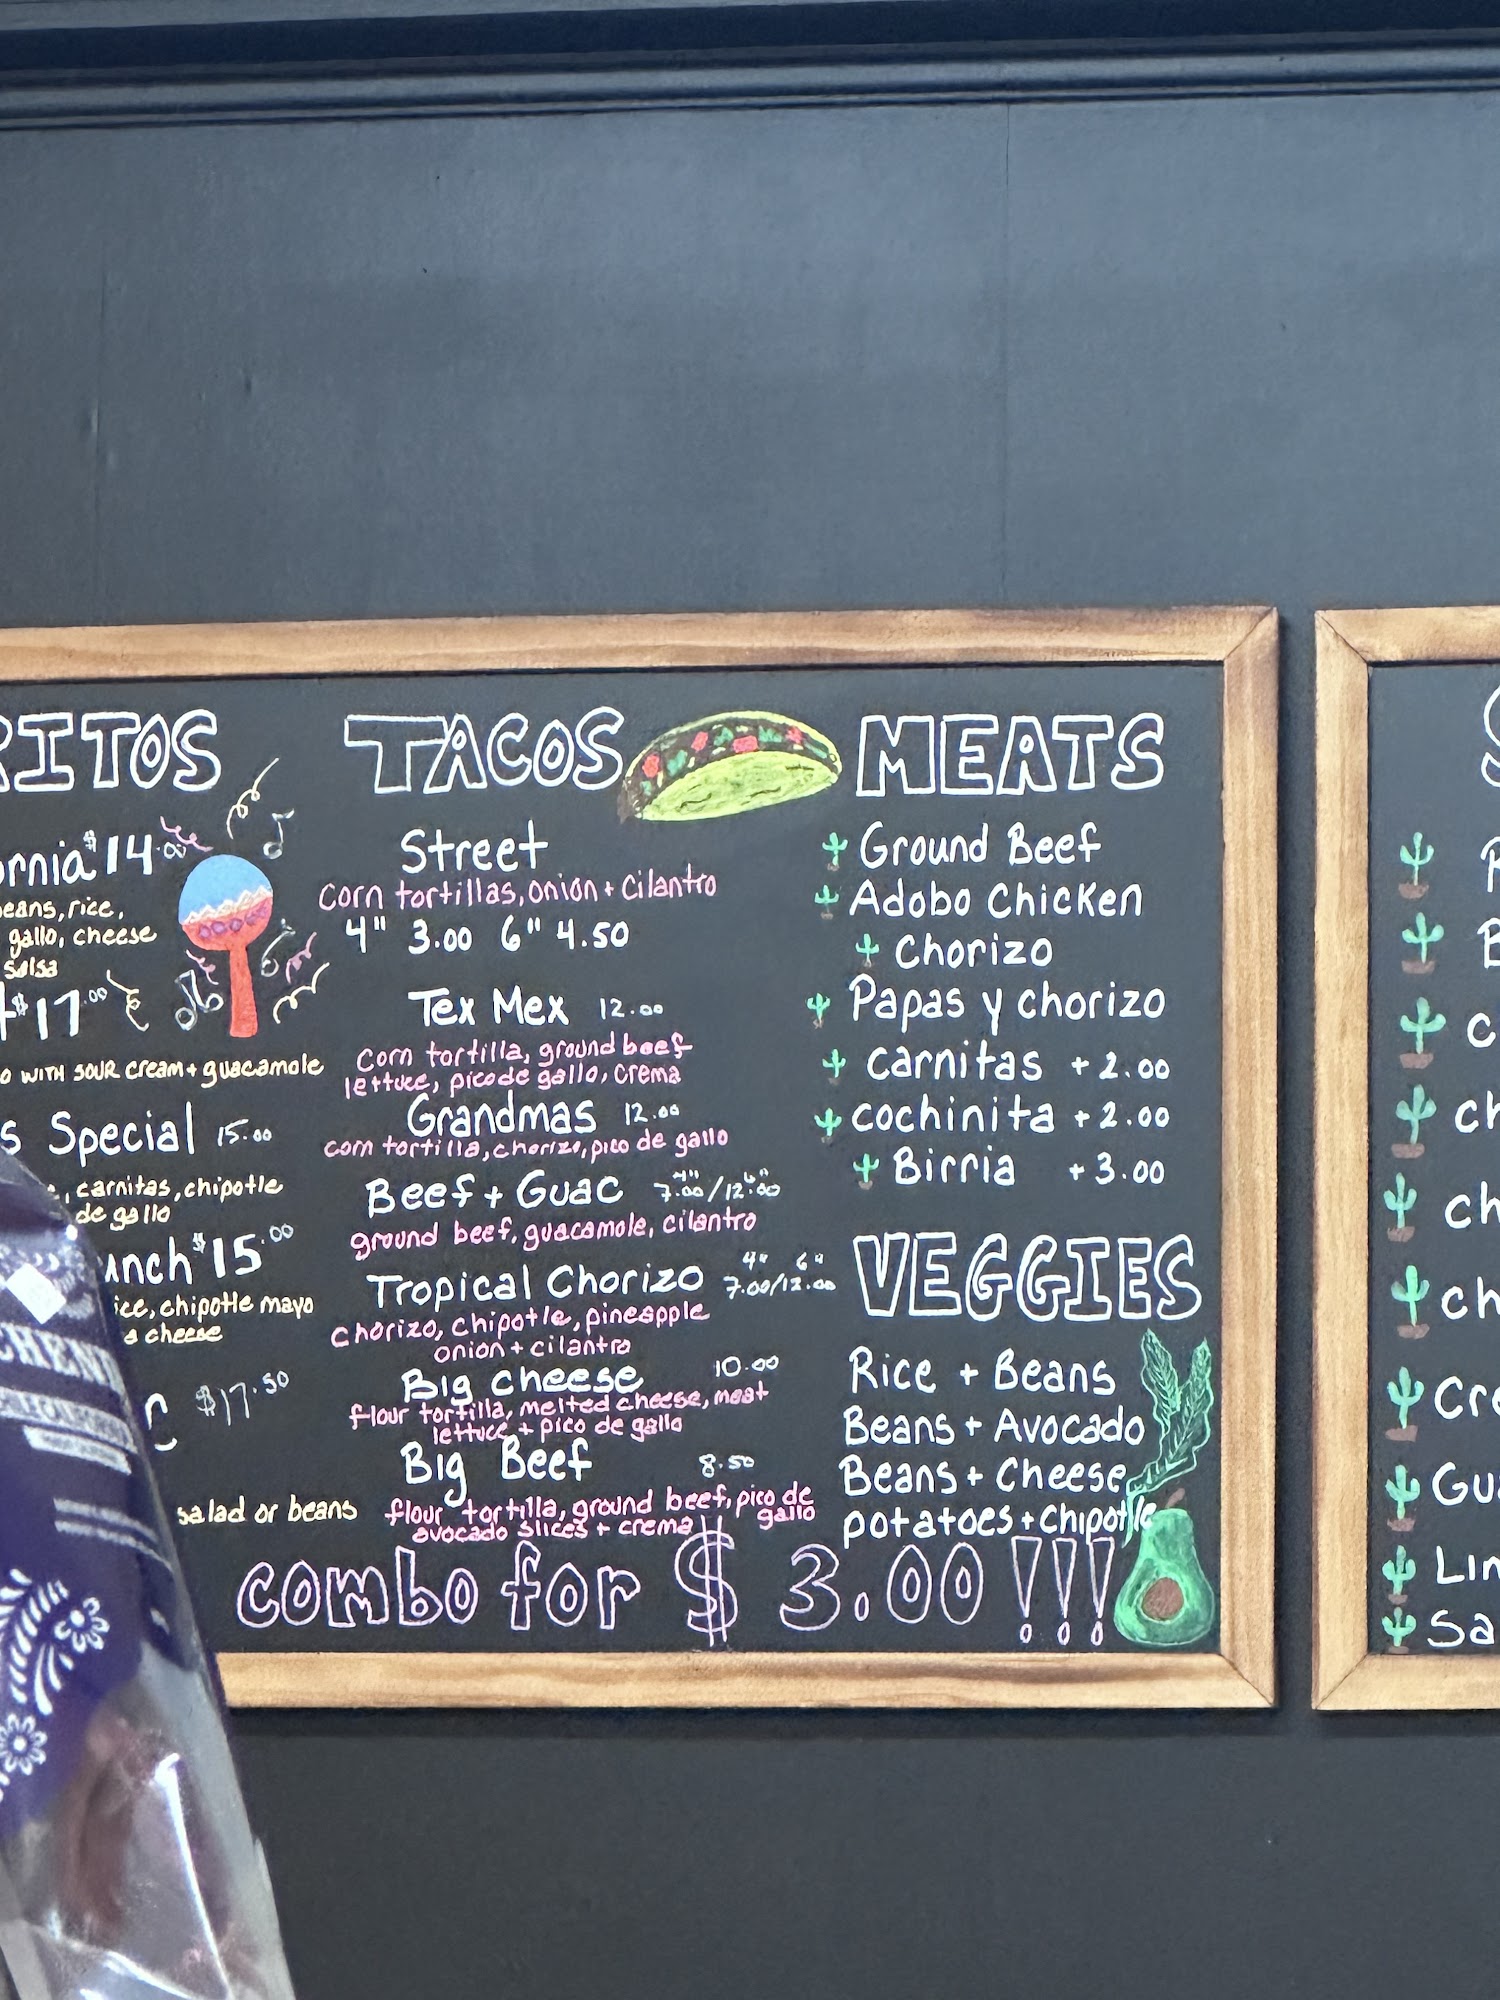 RITOS
ornia $14.00
beans, rice,
gallo, cheese
salsa
$17.00
WITH SOUR cream + guacamole
s Special 15.00
carnitas, chipotle
de gallo
unch $15.00
ice, chipotle mayo
cheese
C $17.50
salad or beans
TACOS
Street
corn tortillas, onion + cilantro
4" 3.00 6" 4.50
Tex Mex 12.00
corn tortilla, ground beef
lettuce, pico de gallo, crema
Grandmas 12.00
corn tortilla, chorizo, pico de gallo
Beef + Guac 4" 6" 7.00/12.00
ground beef, guacamole, cilantro
Tropical Chorizo 4" 6" 7.00/12.00
chorizo, chipotle, pineapple
onion + cilantro
Big cheese 10.00
flour tortilla, melted cheese, meat
lettuce + pico de gallo
Big Beef 8.50
flour tortilla, ground beef, pico de gallo
avocado slices + crema
MEATS
Ground Beef
Adobo Chicken
Chorizo
Papas y chorizo
carnitas +2.00
cochinita +2.00
Birria +3.00
VEGGIES
Rice + Beans
Beans + Avocado
Beans + Cheese
potatoes + Chipotle
combo for $3.00!!!
C
ch
ch
ch
Cre
Gu
Lin
Sa